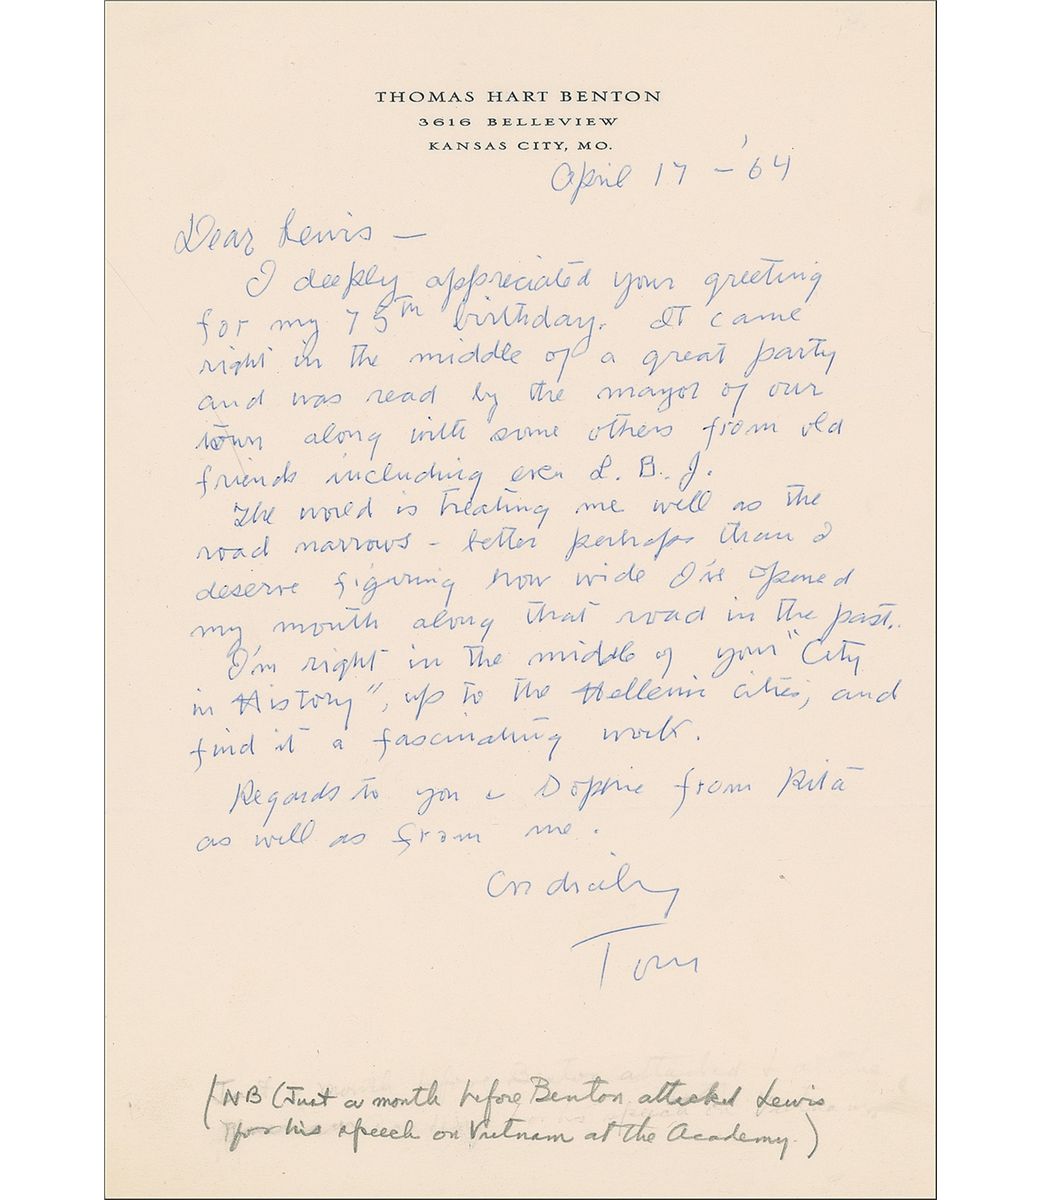 THOMAS HART BENTON
3616 BELLEVIEW
KANSAS CITY, MO.
April 17 – '64
Dear Lewis —
I deeply appreciated your greeting
for my 75th birthday. It came
right in the middle of a great party
and was read by the mayor of our
town along with some others from old
friends including even L. B. J.
The world is treating me well as the
road narrows – better perhaps than I
deserve figuring how wide I've opened
my mouth along that road in the past.
I'm right in the middle of your "City
in History", up to the Hellenic cities, and
find it a fascinating work.
Regards to you & Sophie from Rita
as well as from me.
Cordially
Tom
(NB (Just a month before Benton attacked Lewis
for his speech on Vietnam at the Academy.)